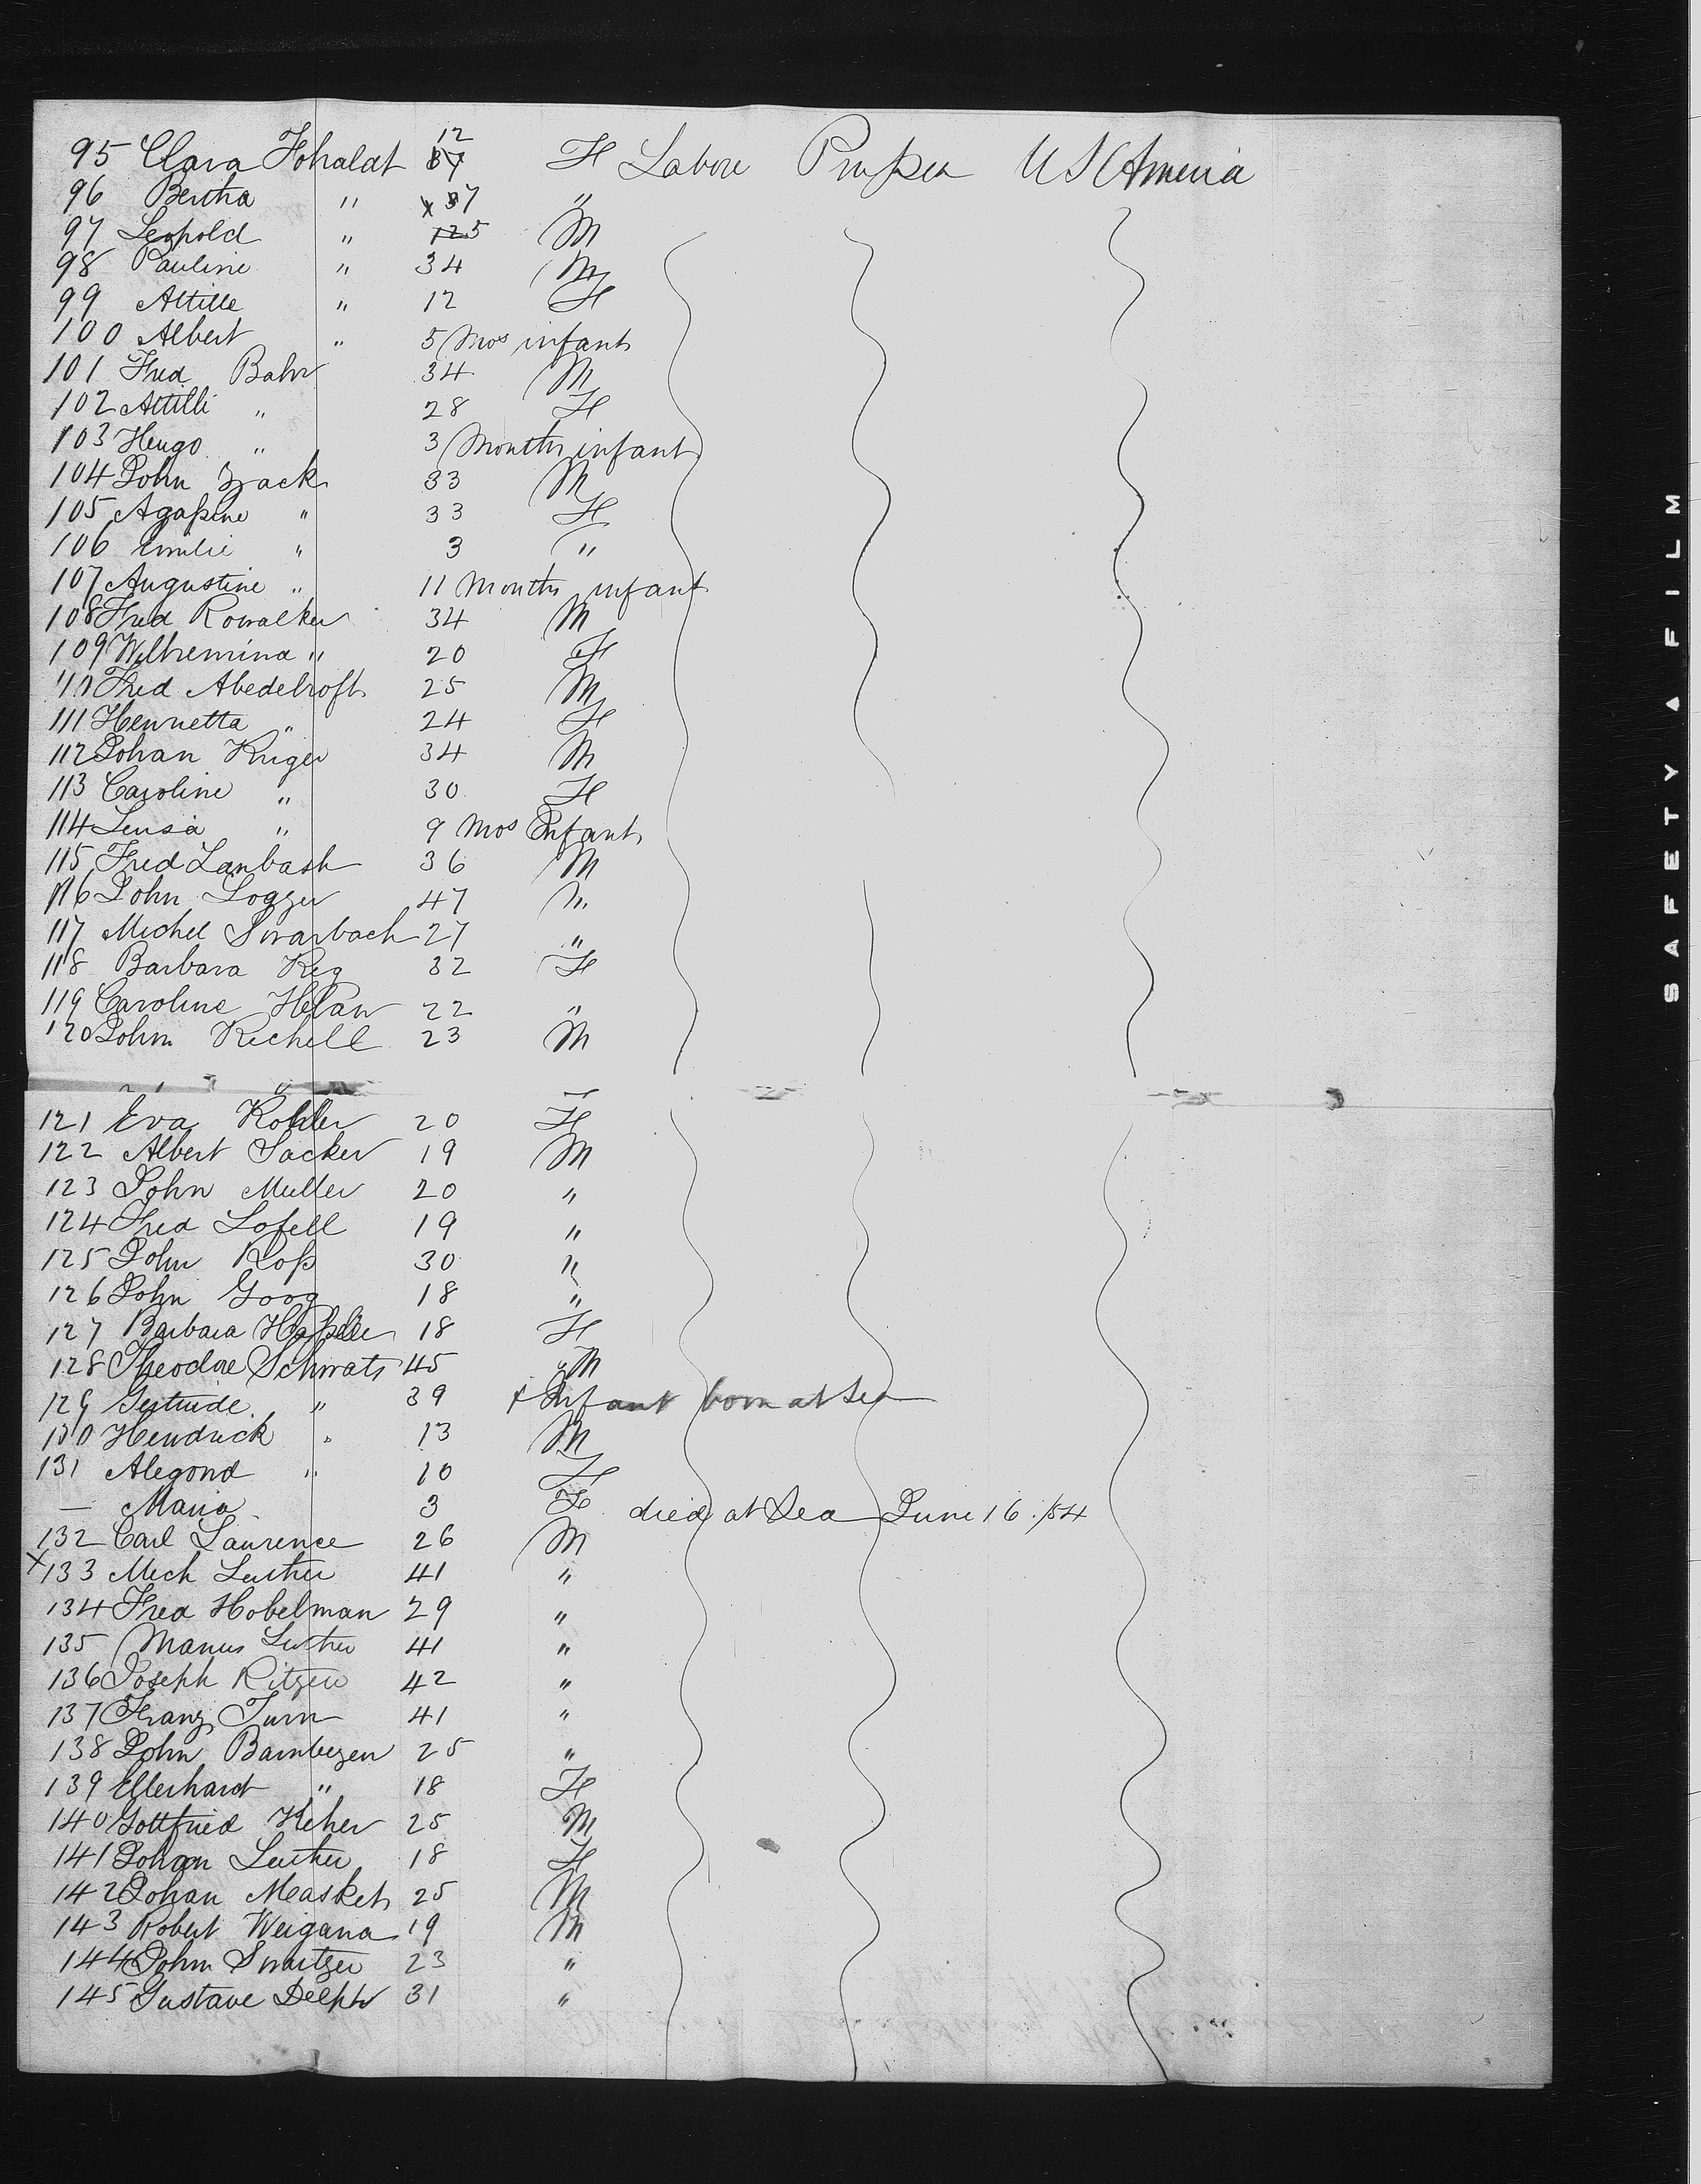 95 Clara Fohaldt 12 F Labore Prussia US America
96 Bertha " 7 "
97 Leopold " 5 M
98 Pauline " 34 M
99 Attille " 12 F
100 Albert " 5 Mos infant
101 Fred Bahr 34 M
102 Attilli " 28 F
103 Hugo " 3 Months infant
104 John Zjack 33 M
105 Agapine " 33 F
106 Emilie " 3 "
107 Augustine " 11 Months infant
108 Fred Rowalker 34 M
109 Wilhemina " 20 F
110 Fred Abedelroft 25 M
111 Hennetta " 24 F
112 Johan Kruger 34 M
113 Caroline " 30 F
114 Lensa " 9 Mos Infant
115 Fred Lanbash 36 M
116 John Logger 47 "
117 Michel Swarbach 27 "
118 Barbara Reg 32 F
119 Caroline Helan 22 "
120 John Richell 23 M
121 Eva Kohler 20 F
122 Albert Sacker 19 M
123 John Muller 20 "
124 Fred Lofell 19 "
125 John Koß 30 "
126 John Goog 18 "
127 Barbara 18 F
128 Theodore Schwats 45 M
129 Gertrude " 39 x Infant born at Sea
130 Hendrick " 13 M
131 Alegond " 10 F
— Maria 3 F died at Sea June 16 /54
132 Carl Laurence 26 M
x 133 Mich Luther 41 "
134 Fred Hobelman 29 "
135 Manus Luther 41 "
136 Joseph Ritzen 42 "
137 Franz Turn 41 "
138 John Bambezen 25 "
139 Ellerhardt " 18 F
140 Gottfried Keher 25 M
141 Johan Luther 18 F
142 Johan Masket 25 M
143 Robert Weigand 19 M
144 John Swartzer 23 "
145 Gustave Delph 31 "
SAFETY A FILM